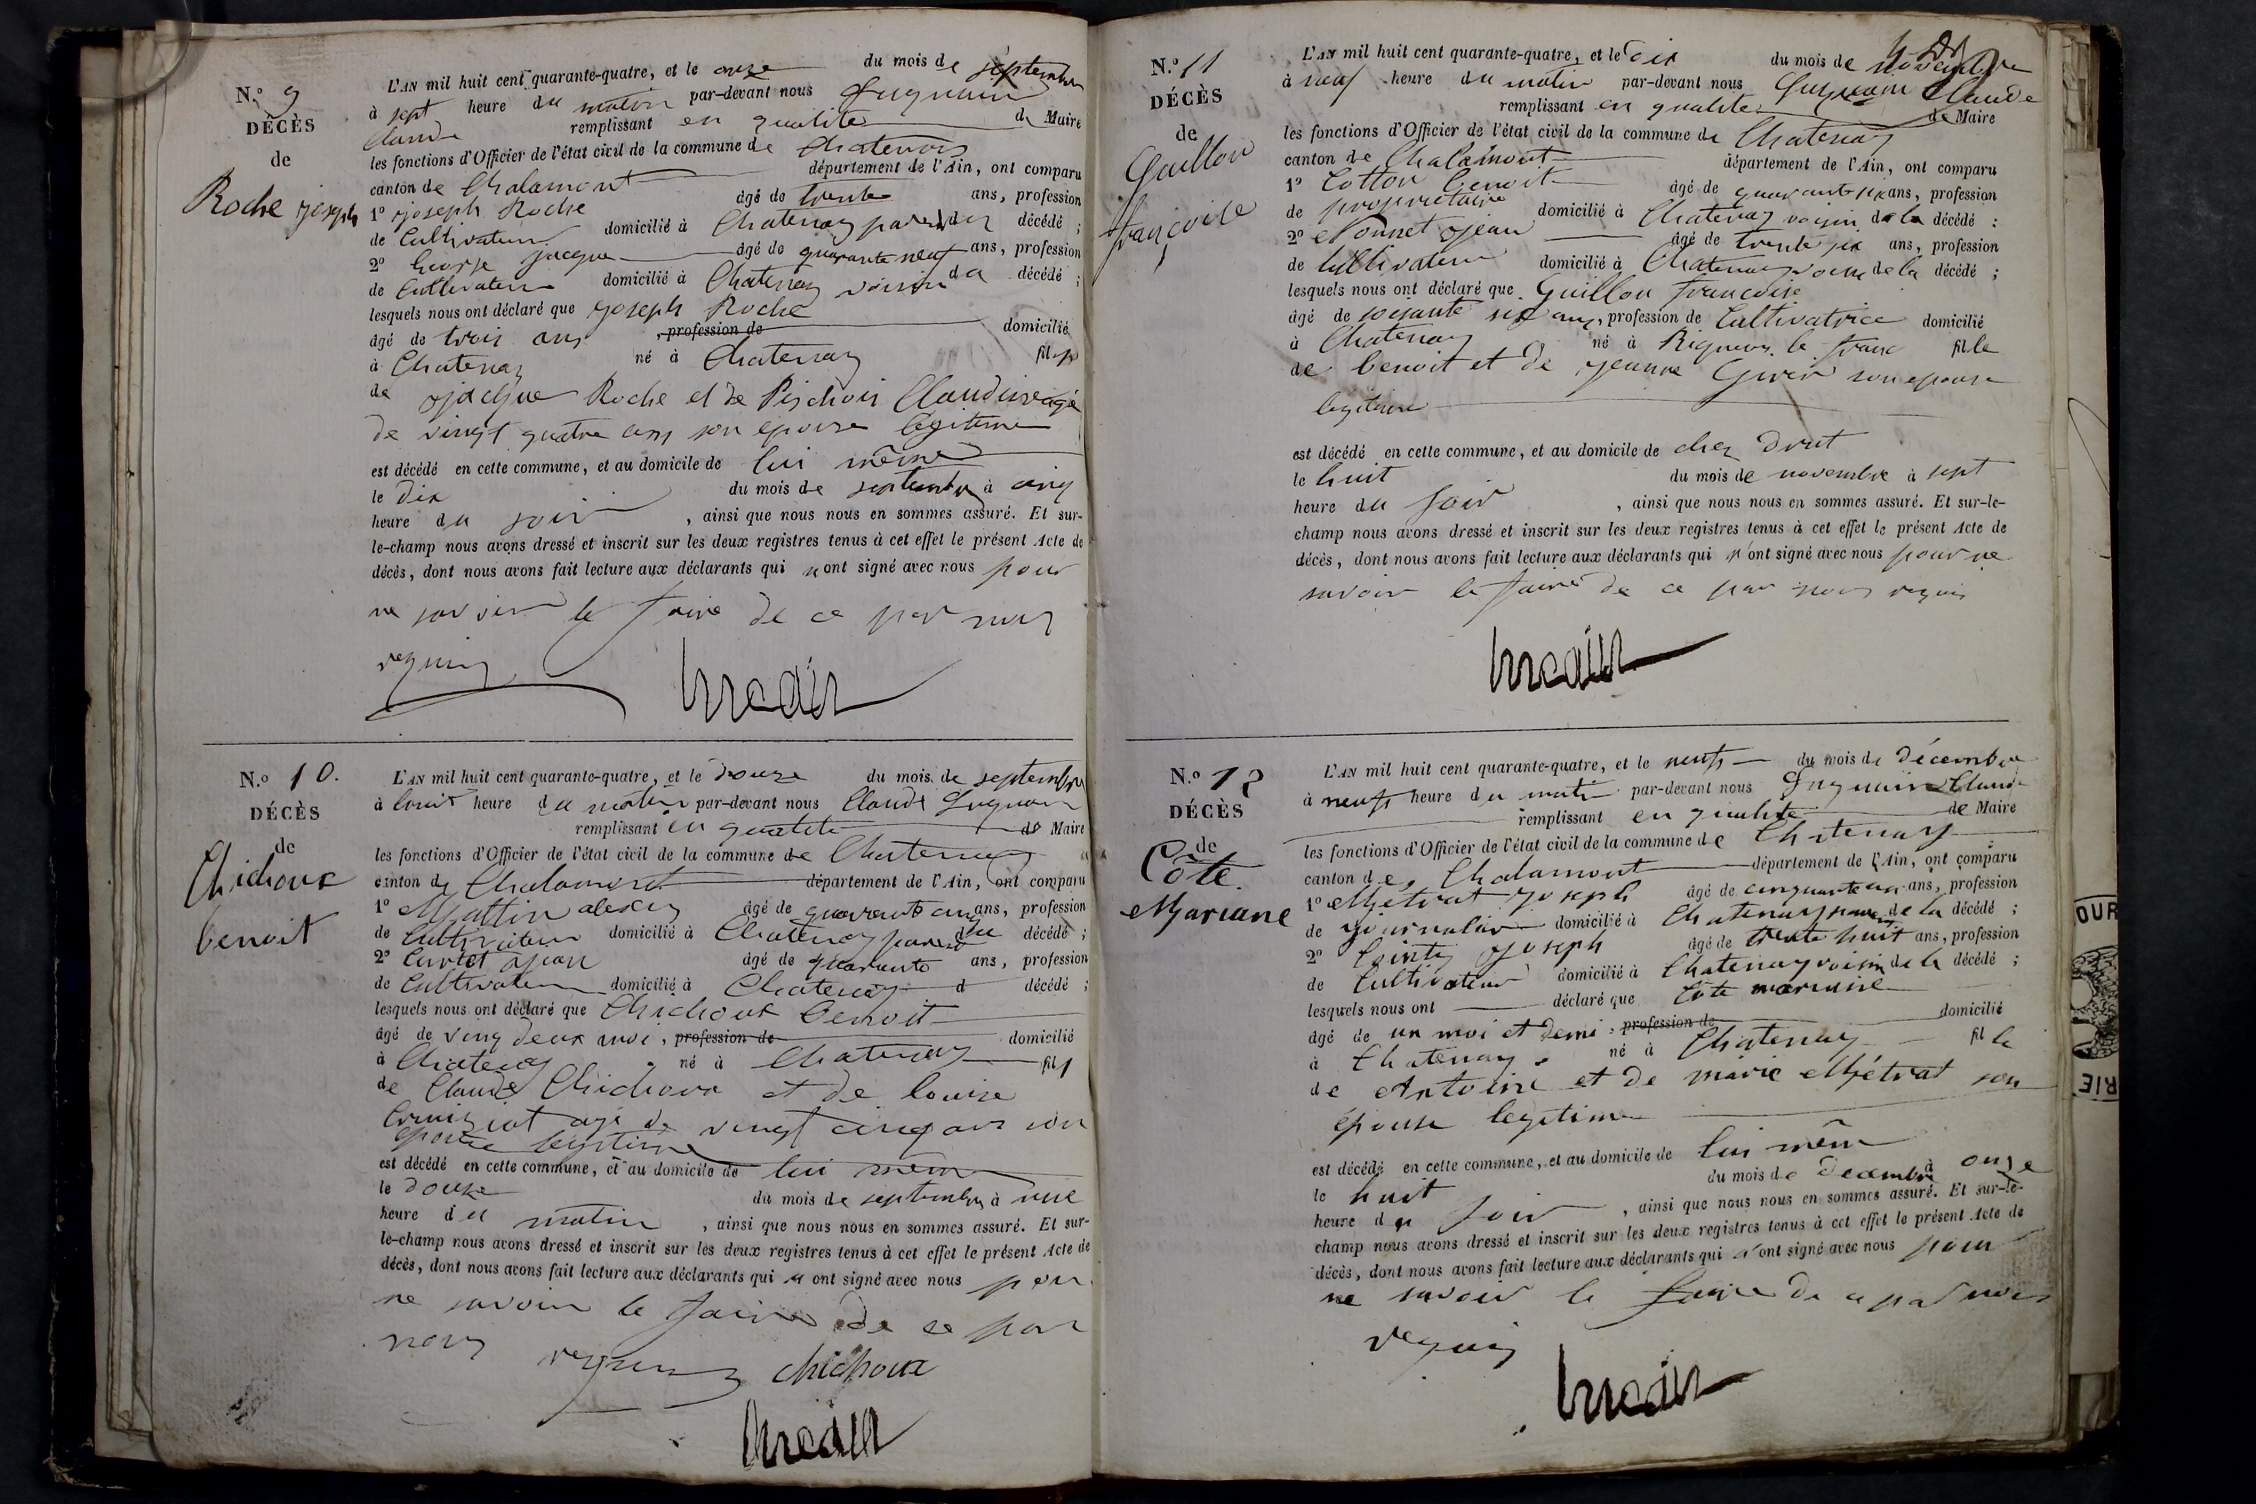 N.º 9
DÉCÈS
de
Roche joseph
L'AN mil huit cent quarante-quatre, et le onze du mois de septembre
à sept heure du matin par-devant nous
Claude remplissant en qualité de Maire
les fonctions d'Officier de l'état civil de la commune de Chatenay
canton de Chalamont département de l'Ain, ont comparu
1º joseph Roche âgé de trente ans, profession
de Cultivateur domicilié à Chatenay parent du décédé ;
2º jacque âgé de quarante neuf ans, profession
de Cultivateur domicilié à Chatenay voisin du décédé ;
lesquels nous ont déclaré que joseph Roche
âgé de trois ans , profession de domicilié
à Chatenay né à Chatenay fils
de jacque Roche et de Pischois Claudine agé
de vingt quatre ans son epouse légitime
est décédé en cette commune, et au domicile de lui même
le dix du mois de septembre à cinq
heure du soir , ainsi que nous nous en sommes assuré. Et sur-
le-champ nous avons dressé et inscrit sur les deux registres tenus à cet effet le présent Acte de
décès, dont nous avons fait lecture aux déclarants qui n ont signé avec nous pour
ne savoir le faire de ce par nous
requis
N.º 10.
DÉCÈS
de
Chichoux
benoit
L'AN mil huit cent quarante-quatre, et le douze du mois de septembre
à huit heure du matin par-devant nous Claude
remplissant en qualité de Maire
les fonctions d'Officier de l'état civil de la commune de Chatenay
canton de Chalamont département de l'Ain, ont comparu
1º alexis âgé de quarante cinq ans, profession
de Cultivateur domicilié à Chatenay parent du décédé ;
2º Curtet jean âgé de quarante ans, profession
de Cultivateur domicilié à Chatenay d décédé ;
lesquels nous ont déclaré que Chichoux benoit
âgé de ving deux moi , profession de domicilié
à Chatenay né à Chatenay fils
de Claude Chichoux et de louise
agé de vingt cinq ans son
epouse legitime
est décédé en cette commune, et au domicile de lui même
le douze du mois de septembre à une
heure du matin , ainsi que nous nous en sommes assuré. Et sur-
le-champ nous avons dressé et inscrit sur les deux registres tenus à cet effet le présent Acte de
décès, dont nous avons fait lecture aux déclarants qui n ont signé avec nous pour
ne savoir le faire de ce par
nous requis chichoux
N.º 11
DÉCÈS
de
Guillon
françoise
L'AN mil huit cent quarante-quatre, et le dix du mois de novembre
à neuf heure du matin par-devant nous Claude
remplissant en qualité de Maire
les fonctions d'Officier de l'état civil de la commune de Chatenay
canton de Chalamont département de l'Ain, ont comparu
1º Cotton benoit âgé de quarante six ans, profession
de propriétaire domicilié à Chatenay voisin de la décédé :
2º jean âgé de trente six ans, profession
de Cultivateur domicilié à Chatenay voisin de la décédé ;
lesquels nous ont déclaré que Guillon francoise
âgé de soisante six ans, profession de Cultivatrice domicilié
à Chatenay né à Rigneux le franc fille
de benoit et de jeanne son epouse
legitime
est décédé en cette commune, et au domicile de chez
le huit du mois de novembre à sept
heure du soir , ainsi que nous nous en sommes assuré. Et sur-le-
champ nous avons dressé et inscrit sur les deux registres tenus à cet effet le présent Acte de
décès, dont nous avons fait lecture aux déclarants qui n'ont signé avec nous pour ne
savoir le faire de ce par nous requis
N.º 12
DÉCÈS
de
Côte
Mariane
L'AN mil huit cent quarante-quatre, et le neuf du mois de décembre
à neuf heure du matin par-devant nous Claude
remplissant en qualité de Maire
les fonctions d'Officier de l'état civil de la commune de Chatenay
canton de Chalamont département de l'Ain, ont comparu
1º Métrat joseph âgé de cinquante ans, profession
de journalier domicilié à Chatenay parent de la décédé ;
2º joseph âgé de trente huit ans, profession
de Cultivateur domicilié à Chatenay voisin de la décédé ;
lesquels nous ont déclaré que Côte mariane
âgé de un moi et demi , profession de domicilié
à Chatenay né à Chatenay fille
de Antoine et de marie Métrat son
épouse legitime
est décédé en cette commune, et au domicile de lui même
le huit du mois de decembre à onze
heure du soir , ainsi que nous nous en sommes assuré. Et sur-le-
champ nous avons dressé et inscrit sur les deux registres tenus à cet effet le présent Acte de
décès, dont nous avons fait lecture aux déclarants qui n'ont signé avec nous pour
ne savoir le faire de ce par nous
requis